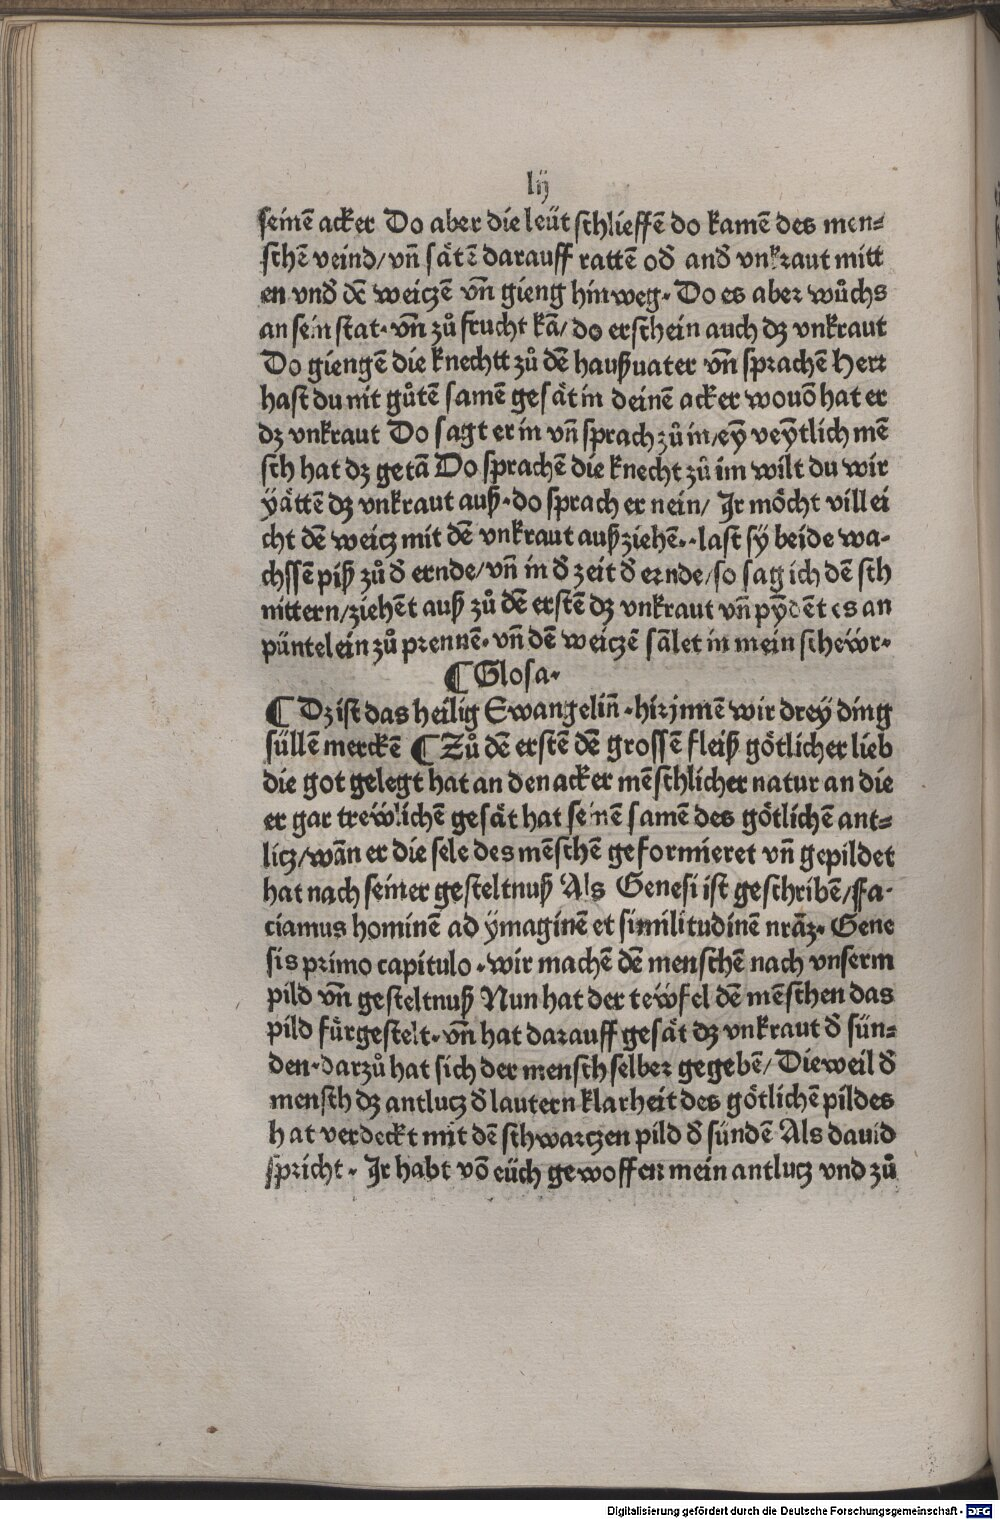 lij
seinē acker Do aber die leüt schlieffē do kamē des men⸗
schē veind/vn̄ sätē darauff rattē od̄ and̄ vnkraut mitt
en vnd̄ dē weiczē vn̄ gieng hinweg. Do es aber wůchs
an sein stat. vn̄ zů frucht kā/do erschein auch dz vnkraut
Do giengē die knechtt zů dē haußuater vn̄ sprachē Herr
hast du nit gůtē samē gesät in deinē acker wouō hat er
dz vnkraut Do sagt er in vn̄ sprach zů in/eȳ veȳtlich mē
sch hat dz getā Do sprachē die knecht zů im wilt du wir
yättē dz vnkraut auß. do sprach er nein/ Ir möcht villei
cht dē weicz mit dē vnkraut außziehē..last sy beide wa-
chssē piß zů d̄ ernde/vn̄ in d̄ zeit d̄ ernde/so sag ich dē sch
nittern/ziehēt auß zů dē erstē dz vnkraut vn̄ pȳdēt es an
püntelein zů prennē. vn̄ dē weiczē sālet in mein schewr.
¶ Glosa.
¶ Dz ist das heilig Ewangelin̄. hirjnnē wir drey ding
süllē merckē ¶ Zů dē erstē dē grossē fleiß götlicher lieb
die got gelegt hat an den acker mēschlicher natur an die
er gar trewlichē gesät hat seinē samē des götlichē ant⸗
licz/wān er die sele des mēschē geformieret vn̄ gepildet
hat nach seiner gesteltnuß Als Genesi ist geschribē/Fa-
ciamus hominē ad ymaginē et similitudinē nrāz. Gene
sis primo capitulo. wir machē dē menschē nach vnserm
pild vn̄ gesteltnuß Nun hat der tewfel dē mēschen das
pild fürgestelt. vn̄ hat darauff gesät dz vnkraut d̄ sün⸗
den. darzů hat sich der mensch selber gegebē/ Dieweil d̄
mensch dz antlucz d̄ lautern klarheit des götlichē pildes
hat verdeckt mit dē schwarczen pild d̄ sündē Als dauid
spricht. Ir habt vō eüch geworffen mein antlucz vnd zů
Digitalisierung gefördert durch die Deutsche Forschungsgemeinschaft - DFG